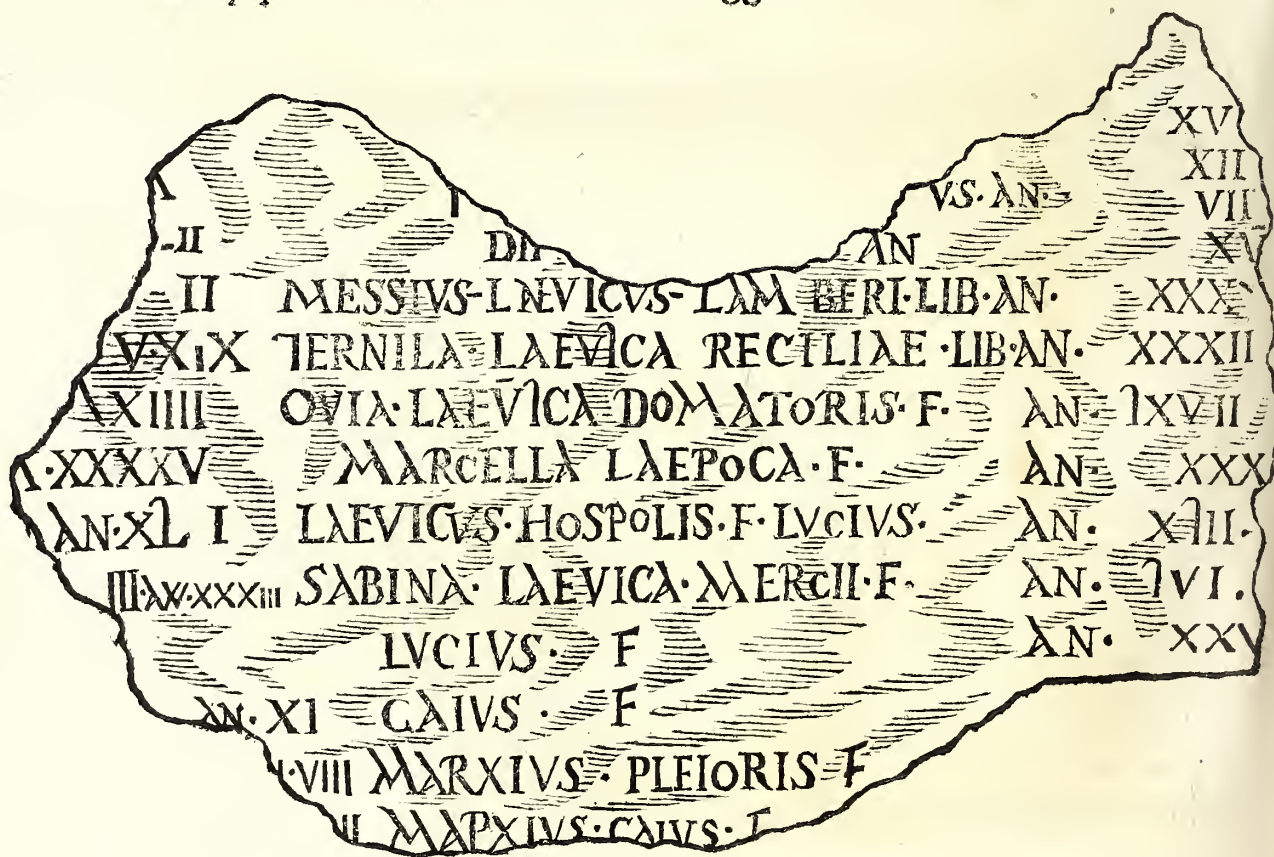 XV
XII
VS·AN· VII
-II AN XV
II MESSIVS-LAEVICVS-LAM BERI·LIB·AN· XXX
V·XIX TERNILA·LAEVICA RECTLIAE·LIB·AN· XXXII
XIIII OVIA·LAEVICA DOMATORIS·F· AN· IXVII
·XXXXV MARCELLA LAEPOCA·F· AN· XXX
AN·XL I LAEVICVS·HOSPOLIS·F·LVCIVS· AN·
III·AN·XXXIII SABINA·LAEVICA·MERCII·F· AN· VI.
LVCIVS· F AN· XXV
AN·XI CAIVS· F
·VIII MARXIVS·PLEIORIS F
MAPXIVS·CAIVS·